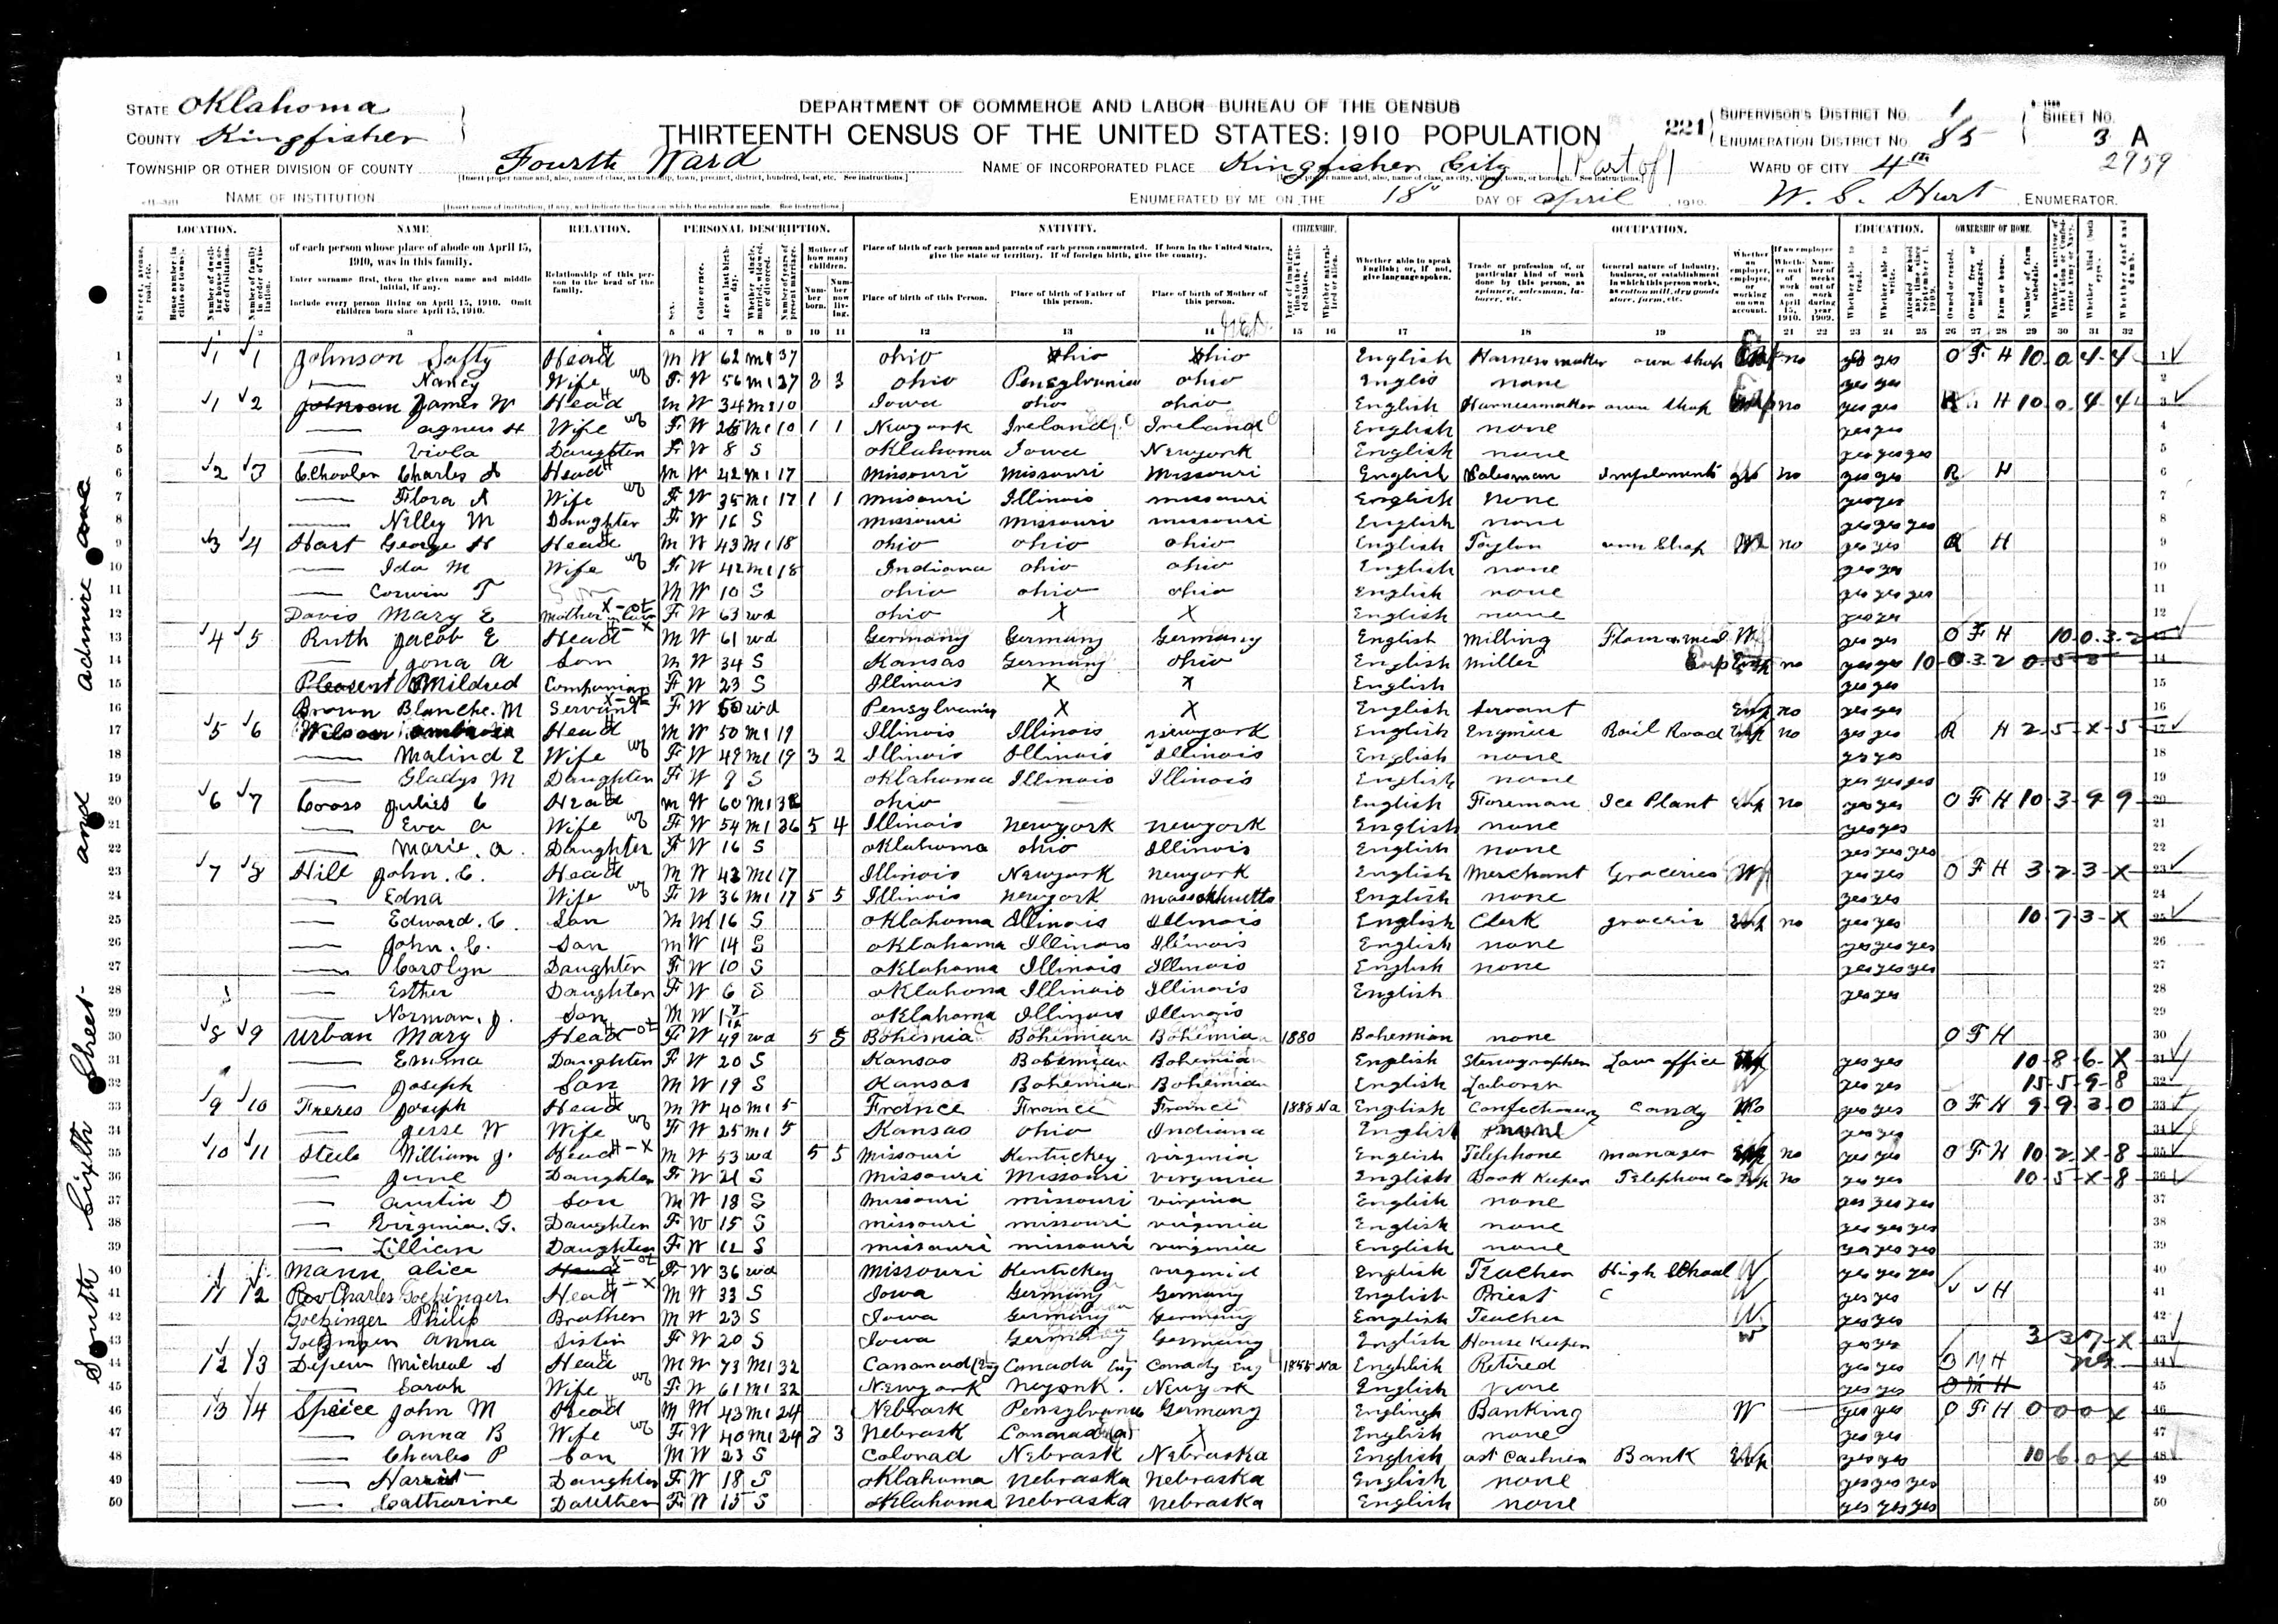 STATE Oklahoma
COUNTY Kingfisher
DEPARTMENT OF COMMERCE AND LABOR-BUREAU OF THE CENSUS
THIRTEENTH CENSUS OF THE UNITED STATES: 1910 POPULATION
221
SUPERVISOR'S DISTRICT NO. 1
ENUMERATION DISTRICT NO. 85
SHEET NO. 3 A
2959
TOWNSHIP OR OTHER DIVISION OF COUNTY Fourth Ward
NAME OF INCORPORATED PLACE Kingfisher City (Part of)
WARD OF CITY 4th
NAME OF INSTITUTION
ENUMERATED BY ME ON THE 18" DAY OF April, 1910.
W. S. Hurt, ENUMERATOR.
LOCATION. NAME RELATION. PERSONAL DESCRIPTION. NATIVITY. CITIZENSHIP. OCCUPATION. EDUCATION. OWNERSHIP OF HOME.
of each person whose place of abode on April 15, 1910, was in this family.
Enter surname first, then the given name and middle initial, if any.
Include every person living on April 15, 1910. Omit children born since April 15, 1910.
Relationship of this person to the head of the family.
Place of birth of each person and parents of each person enumerated. If born in the United States, give the state or territory. If of foreign birth, give the country.
Place of birth of this Person. Place of birth of Father of this person. Place of birth of Mother of this person.
Whether able to speak English; or, if not, give language spoken.
Trade or profession of, or particular kind of work done by this person, as spinner, salesman, laborer, etc.
General nature of industry, business, or establishment in which this person works, as cotton mill, dry goods store, farm, etc.
South Sixth Street and admire
1 1 1 Johnson Head M W 62 M1 37 ohio ohio ohio English Harnessmaker own shop no yes yes O F H 10 0 4 4
2 Nancy Wife F W 56 M1 37 3 3 ohio Pensylvania ohio Englis none yes yes
3 1 2 James W Head M W 34 M1 10 Iowa ohio ohio English Harnessmaker own shop no yes yes H 10 0 4 4
4 agnes H Wife F W M1 10 1 1 Newyork Ireland Ireland English none yes yes
5 Viola Daughter F W 8 S oklahoma Iowa Newyork English none yes yes yes
6 2 3 Charles Head M W 42 M1 17 Missouri Missouri Missouri English Salesman Implements no yes yes R H
7 Flora A Wife F W 35 M1 17 1 1 missouri Illinois missouri English none yes yes
8 Nelly M Daughter F W 16 S missouri missouri missouri English none yes yes yes
9 3 4 Hart George H Head M W 43 M1 18 ohio ohio ohio English Taylor own Shop no yes yes R H
10 Ida M Wife F W 42 M1 18 Indiana ohio ohio English none yes yes
11 Corwin T M W 10 S ohio ohio ohio English none yes yes yes
12 Davis Mary E mother in law F W 63 wd ohio X X English none yes yes
13 4 5 Ruth Jacob E Head M W 61 wd Germany Germany Germany English Milling W yes yes O F H 10 0 3 2
14 Jona A Son M W 34 S Kansas Germany ohio English miller Emp no yes yes 10 0 3 2 0 5 3
15 Mildred Companion F W 23 S Illinois X X English yes yes
16 Brown Blanche. M Servant F W wd Pensylvania X X English Servant no yes yes
17 5 6 Wilson Head M W 50 M1 19 Illinois Illinois newyork English Engineer Rail Road no yes yes R H 2 5 X 5
18 Malind E Wife F W 49 M1 19 3 2 Illinois Illinois Illinois English none yes yes
19 Gladys M Daughter F W 9 S oklahoma Illinois Illinois English none yes yes yes
20 6 7 Julies C Head M W 60 M1 ohio English Foreman Ice Plant no yes yes O F H 10 3 9 9
21 Eva A Wife F W 54 M1 36 5 4 Illinois newyork newyork English none yes yes
22 Marie. A. Daughter F W 16 S oklahoma ohio Illinois English none yes yes yes
23 7 8 Hill John. C. Head M W 42 M1 17 Illinois Newyork newyork English merchant Groceries W yes yes O F H 3 2 3 X
24 Edna Wife F W 36 M1 17 5 5 Illinois newyork massachuetts English none yes yes
25 Edward. C. Son M W 16 S oklahoma Illinois Illinois English Clerk grocrie no yes yes 10 7 3 X
26 John. C. Son M W 14 S oklahoma Illinois Illinois English none yes yes yes
27 Carolyn Daughter F W 10 S oklahoma Illinois Illinois English none yes yes yes
28 Esther Daughter F W 6 S oklahoma Illinois Illinois English yes yes
29 Norman. J. Son M W oklahoma Illinois Illinois
30 8 9 Urban Mary Head F W 49 wd 5 5 Bohemia Bohemian Bohemian 1880 Bohemian none O F H
31 Emma Daughter F W 20 S Kansas Bohemian Bohemian English Stenographer Law office yes yes 10 8 6 X
32 Joseph Son M W 19 S Kansas Bohemian Bohemian English Laborer yes yes 15 5 9 8
33 9 10 Freres Joseph Head M W 40 M1 5 France France France 1888 Na English Confectionery Candy yes yes O F H 9 9 3 0
34 Jesse W Wife F W 25 M1 5 Kansas ohio Indiana English none yes yes
35 10 11 Steele William J. Head M W 53 wd 5 5 Missouri Kentuckey virginia English Telephone manager no yes yes O F H 10 2 X 8
36 June Daughter F W 21 S Missouri Missouri virginia English Book Keeper Telephone Co no yes yes 10 5 X 8
37 Austin D Son M W 18 S Missouri missouri virginia English none yes yes yes
38 Virginia. G. Daughter F W 15 S missouri missouri virginia English none yes yes yes
39 Lillian Daughter F W 12 S missouri missouri virginia English none yes yes yes
40 Mann Alice Head F W 36 wd Missouri Kentuckey virginia English Teacher High School W yes yes yes
41 11 12 Rev Charles Goetzinger Head M W 33 S Iowa Germany Germany English Priest yes yes H
42 Goetzinger Philip Brother M W 23 S Iowa Germany Germany English Teacher W yes yes
43 Anna Sister F W 20 S Iowa Germany Germany English House Keeper W yes yes 3 3 7 X
44 12 13 Micheal S Head M W 73 M1 32 Canada Eng Canady Eng Na English Retired yes yes O M H
45 Sarah Wife F W 61 M1 32 Newyork neyork. Newyork English none yes yes O M H
46 13 14 Speice John M Head M W 43 M1 24 Nebrask Pensylvania Germany English Banking W yes yes O F H 0 0 0 X
47 Anna B Wife F W 40 M1 24 3 3 Nebrask X English none yes yes
48 Charles P Son M W 23 S Colorad Nebrask Nebraska English ast Cashier Bank yes yes 10 6 0 X
49 Harriet Daughter F W 18 S oklahoma nebraska nebraska English none yes yes yes
50 Catharine F W 15 S oklahoma nebraska nebraska English none yes yes yes